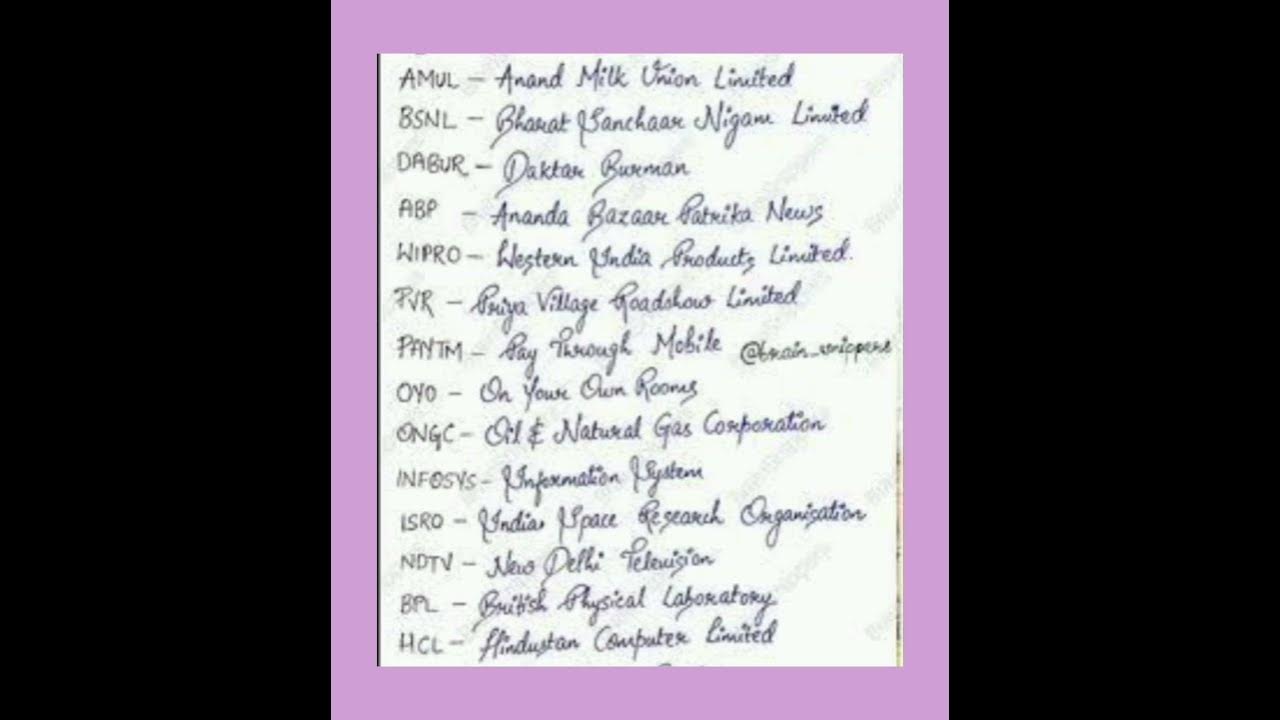 AMUL - Anand Milk Union Limited
BSNL - Bharat Sanchaar Nigam Limited
DABUR - Daktar Burman
ABP - Ananda Bazaar Patrika News
WIPRO - Western India Products Limited.
PVR - Priya Village Roadshow Limited
PAYTM - Pay Through Mobile @brain_snippers
OYO - On Your Own Rooms
ONGC - Oil & Natural Gas Corporation
INFOSYS - Information System
ISRO - India Space Research Organisation
NDTV - New Delhi Television
BPL - British Physical Laboratory
HCL - Hindustan Computer Limited